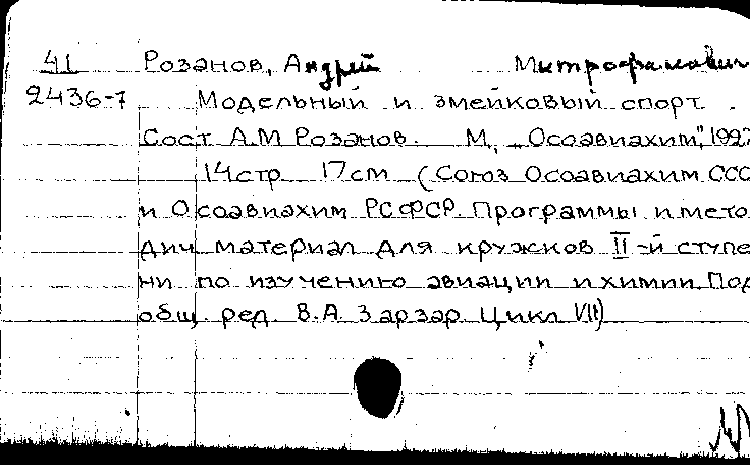 41 Розанов, Андрей Митрофанович
2436-7 Модельный и змейковый спорт.
Сост. А.М. Розанов. М., "Осоавиахим", 1927
14 стр. 17 см (Союз Осоавиахим ССС
и Осоавиахим РСФСР. Программы и мето
дич. материал для кружков II-й ступе
ни по изучению авиации и химии. Под
общ. ред. В.А. Зарзар. Цикл VII)